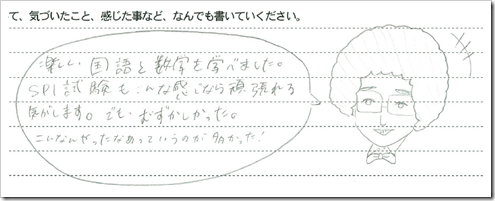 て、気づいたこと、感じた事など、なんでも書いていください。
楽しい国語と数学を学べました。
SPI試験もこんな感じなら頑張れる
気がします。でも むずかしかった。
こんなんやったなあっていうのが多かった!